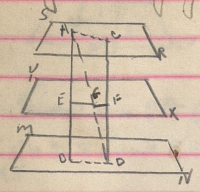 S
A C
R
V
E G F
X
M
B D
N